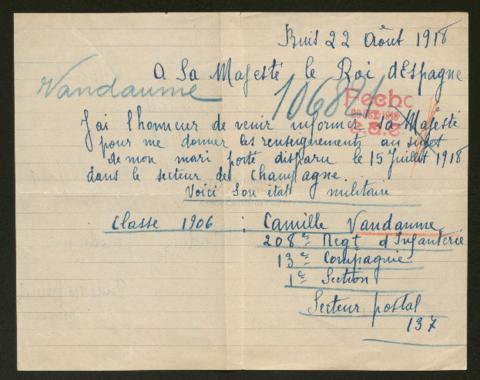 Buis 22 Août 1918
A Sa Majesté le Roi d'Espagne
Vandaume
106821
Fecho
1918
J'ai l'honneur de venir informer sa Majesté
pour me donner les renseignements au sujet
de mon mari porté disparu le 15 Juillet 1918
dans le secteur de Champagne.
Voici son état militaire
Classe 1906 : Camille Vandaume
208e Regt d'Infanterie
13e Compagnie
1e Section
Secteur postal
137